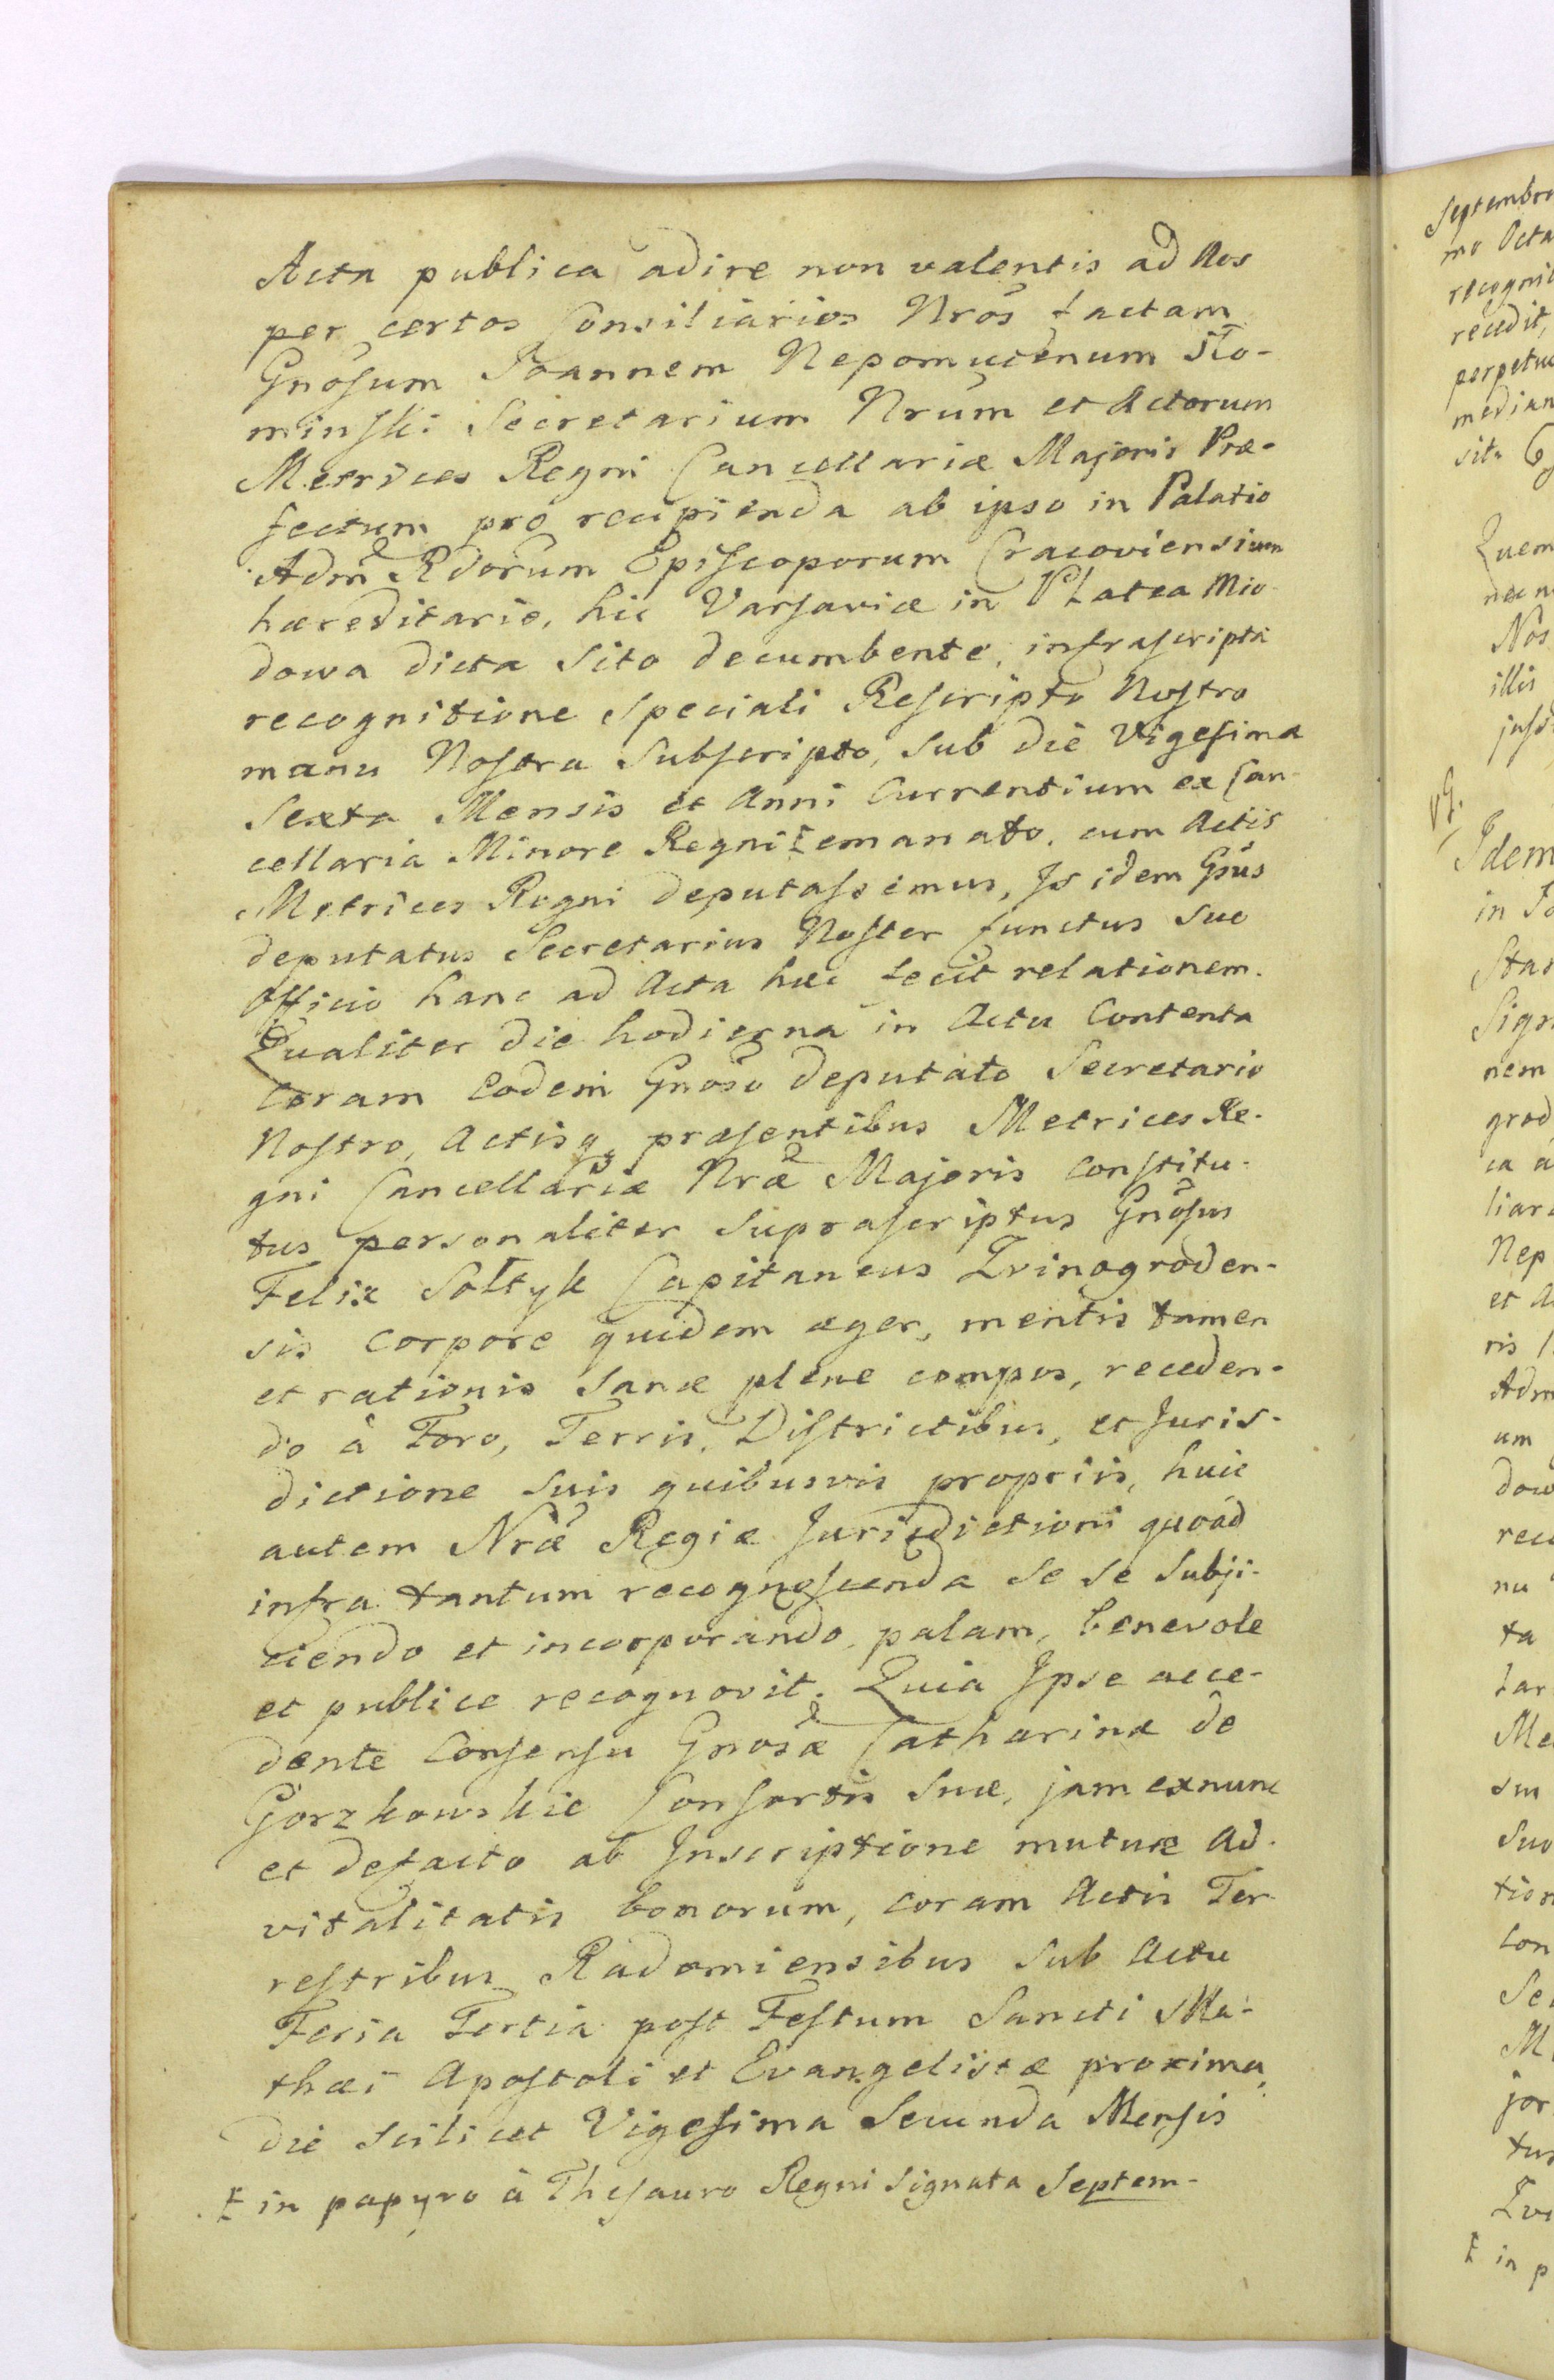 Acta publica adire non valentis ad Nos
per certos Consiliarios Nros factam
Gnosum Joannem Nepomucenum Sło-
minski Secretarium Nrum et Actorum
Metrices Regni Cancellariæ Majoris Præ-
fectum pro recipienda ab ipso in Palatio
Adm Rdorum Episcoporum Cracoviensium
hæreditario, hic Varsaviæ in Platea Mio-
dowa dicta sito decumbente, infrascripta
recognitione speciali Rescripto Nostro
manu Nostra subscripto, sub die Vigesima
Sexta Mensis et Anni Currentium ex Can-
cellaria Minore Regni Ɫ emanato, cum Actis
Metrices Regni deputassemus, Is idem Gsus
deputatus Secretarius Noster functus suo
Officio hanc ad Acta hæc fecit relationem.
Qualiter die hodierna in Actu Contenta
Coram Eodem Gnoso deputato Secretario
Nostro, Actisq præsentibus Metrices Re-
gni Cancellariæ Nræ Majoris Constitu-
tus personaliter suprascriptus Gnosus
Felix Sołtyk Capitaneus Zvinogroden-
sis Corpore quidem æger, mentis tamen
et rationis sanæ plene compos, receden-
do à Foro, Terris, Districtibus, et Juris-
dictione suis quibusvis propriis, huic
autem Nræ Regiæ Jurisdictioni quoad
infra tantum recognoscenda se se subji-
ciendo et incorporando, palam, benevole
et publice recognovit. Quia Ipse acce-
dente Consensu Gnosæ Catharinæ de
Gorzkowskie Consortis suæ, jam exnunc
et defacto ab Inscriptione mutuæ Ad-
vitalitatis bonorum, coram Actis Ter-
restribus Radomiensibus sub Actu
Feria Tertia post Festum Sancti Ma-
thæi Apostoli et Evangelistæ proxima,
die scilicet Vigesima Secunda Mensis
Ɫ in papyro à Thesauro Regni signata Septem-
Septembr
mo Octa
recognit
recedit,
perpetu
median
sit.
Quem
nec n
Nos
illis
Idem
in
Star
Sign
nem
grod
ca a
liar
Nep
et A
ris
Adm
um
dow
reco
nu
ta
tar
Me
sui
suo
tion
Con
Se
M
jor
tus
Zvi
Ɫ in p